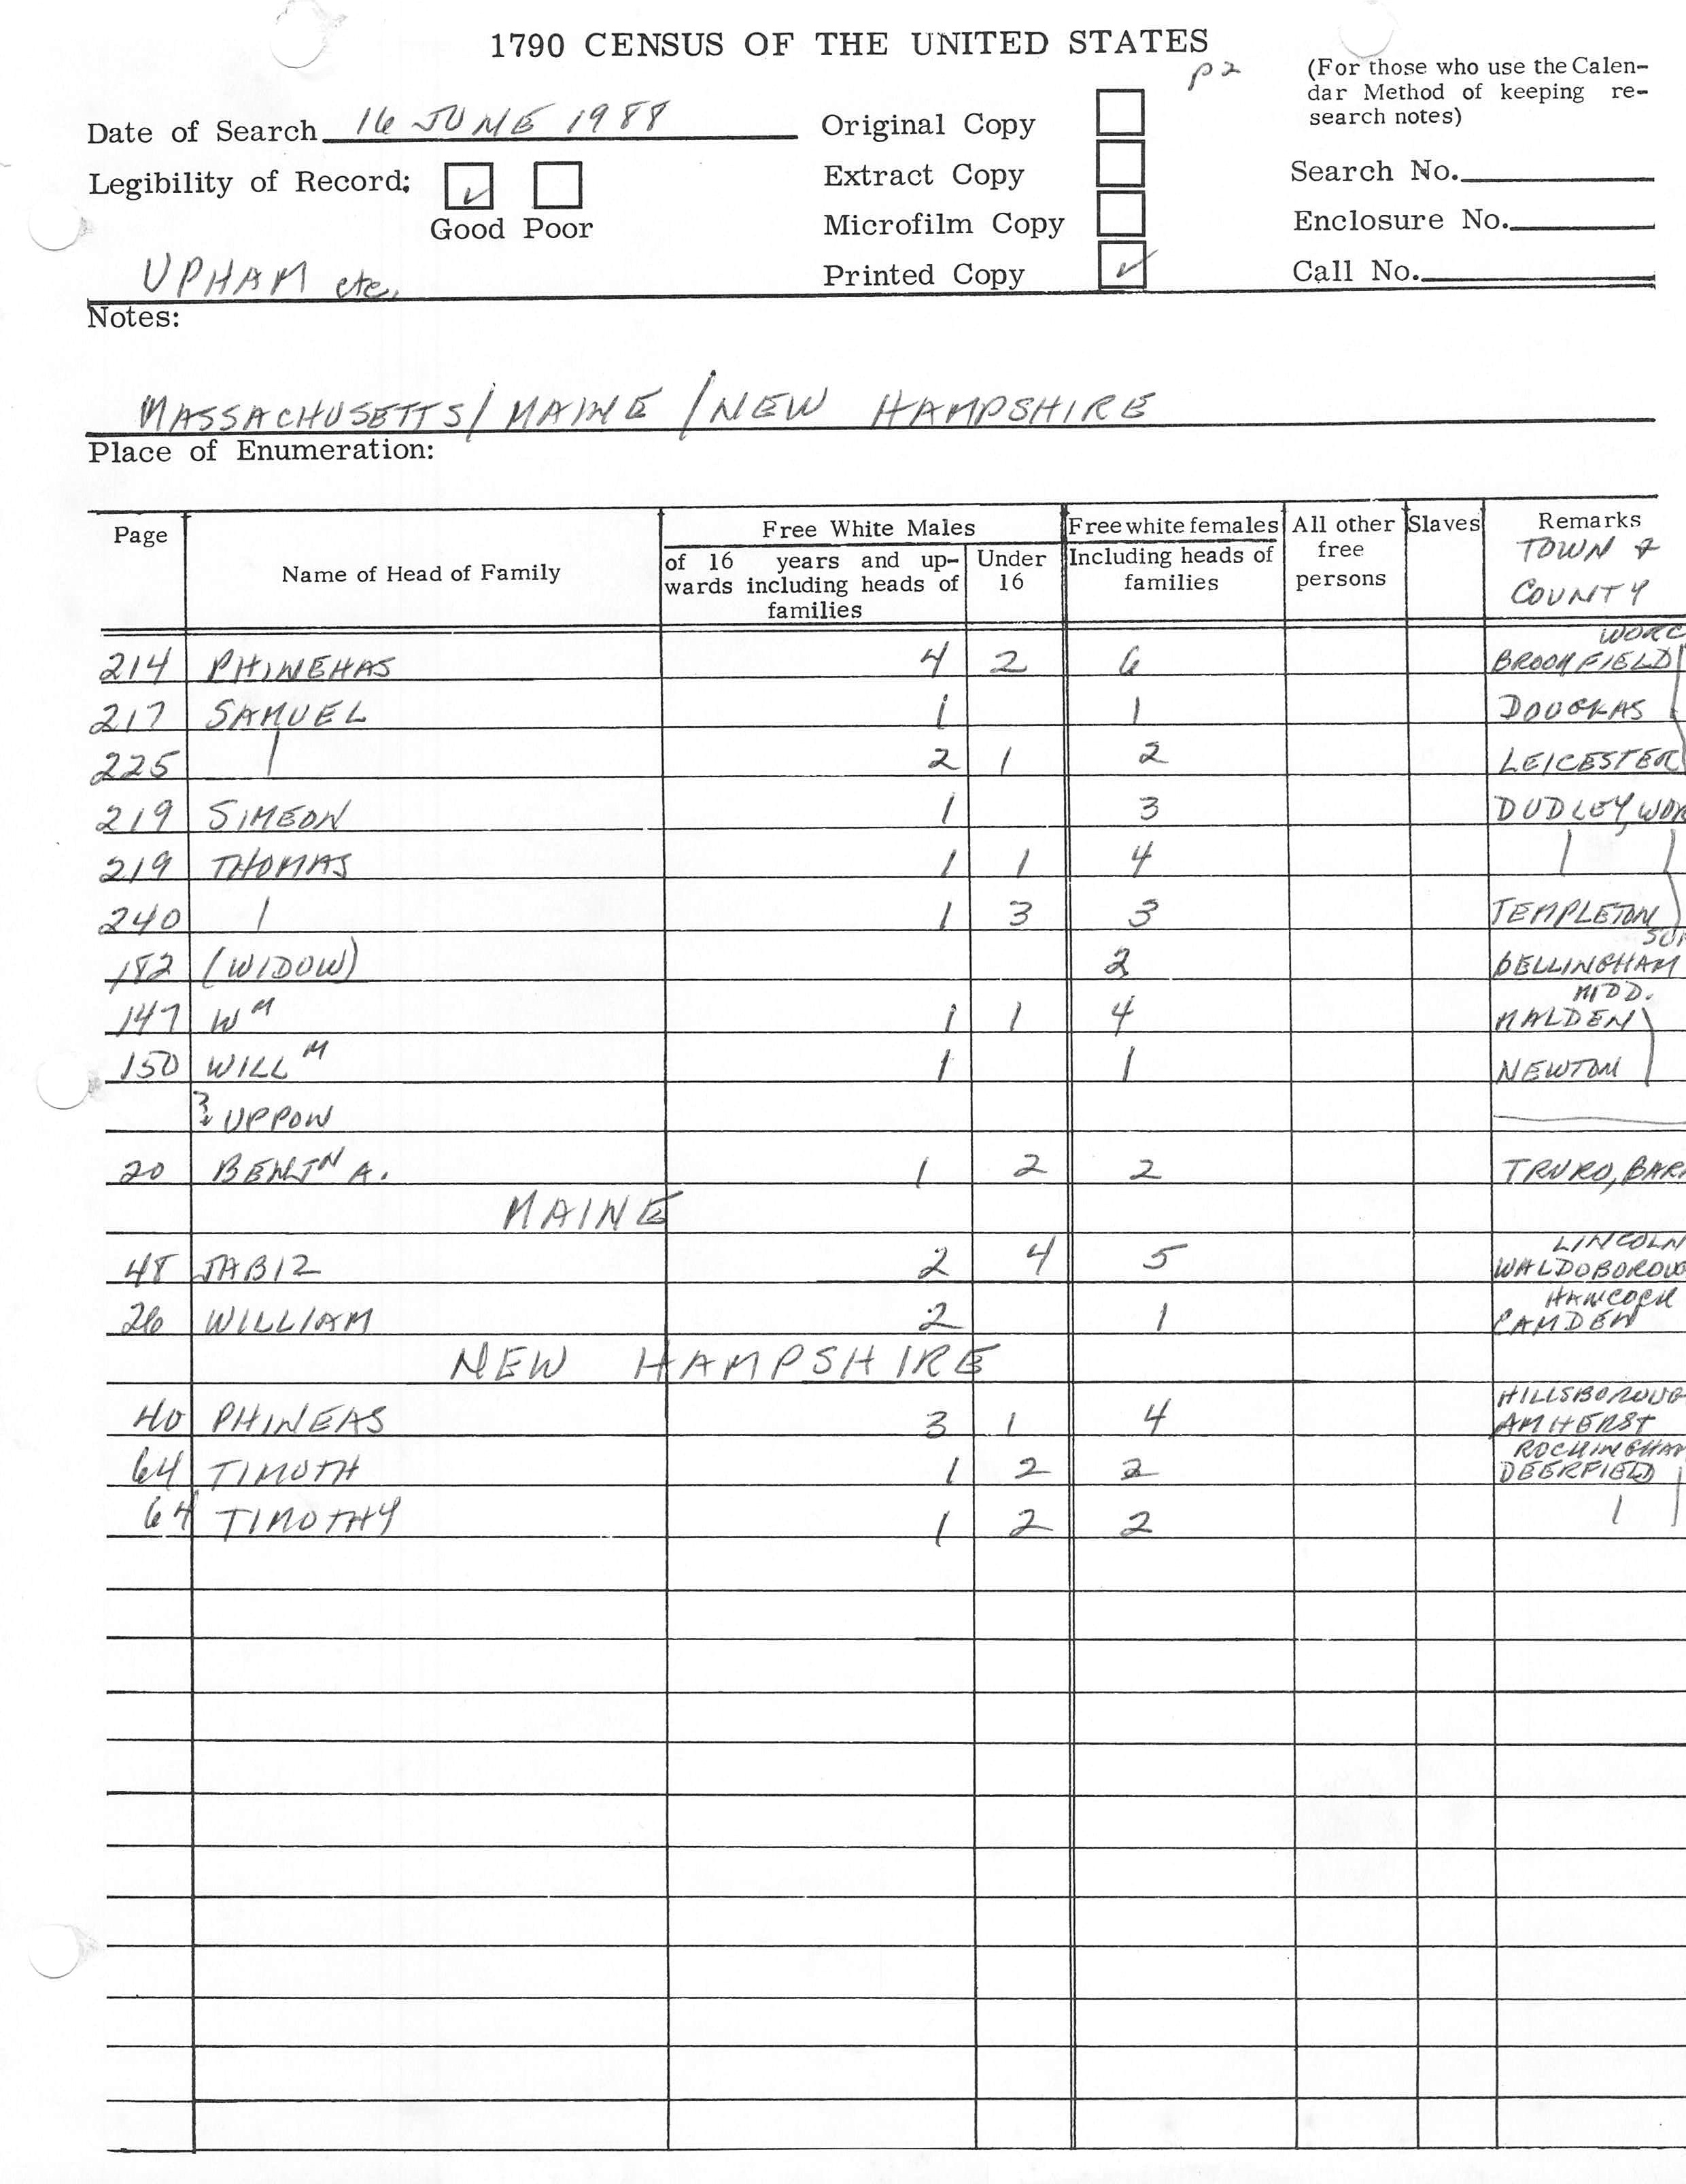 1790 CENSUS OF THE UNITED STATES
p2
(For those who use the Calen-
dar Method of keeping re-
search notes)
Date of Search 16 JUNE 1988
Original Copy
Legibility of Record: ✓
Good Poor
Extract Copy
Search No.
Microfilm Copy
Enclosure No.
UPHAM etc.
Printed Copy ✓
Call No.
Notes:
MASSACHUSETTS/MAINE/NEW HAMPSHIRE
Place of Enumeration:
Page
Name of Head of Family
Free White Males
of 16 years and up-
wards including heads of
families
Under
16
Free white females
Including heads of
families
All other
free
persons
Slaves
Remarks
TOWN &
COUNTY
WORC
214 PHINEHAS 4 2 6 BROOKFIELD
217 SAMUEL 1 1 DOUGLAS
225 | 2 1 2 LEICESTER
219 SIMEON 1 3 DUDLEY, WOR
219 THOMAS 1 1 4 |
240 | 1 3 3 TEMPLETON
SUF
182 (WIDOW) 2 BELLINGHAM
MIDD.
147 Wᴹ 1 1 4 MALDEN
150 WILLᴹ 1 1 NEWTON
UPPOW
20 BENJᴺ A. 1 2 2 TRURO, BAR
MAINE
LINCOLN
48 JABIZ 2 4 5 WALDOBOROU
HANCOCK
26 WILLIAM 2 1 CAMDEN
NEW HAMPSHIRE
HILLSBOROUG
40 PHINEAS 3 1 4 AMHERST
ROCKINGHAM
64 TIMOTH 1 2 2 DEERFIELD
64 TIMOTHY 1 2 2 |